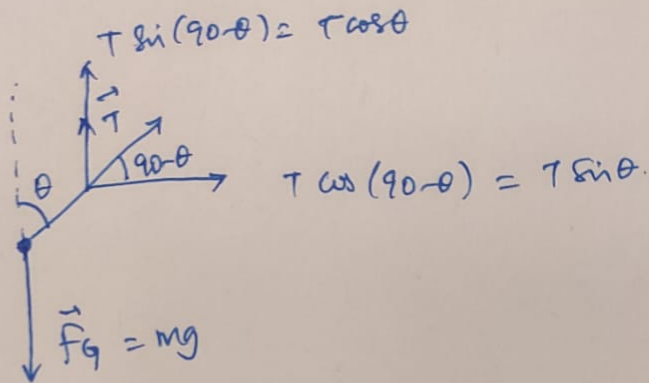 T sin(90-θ) = T cosθ
T
θ
90-θ
T cos (90-θ) = T sinθ.
F_G = mg